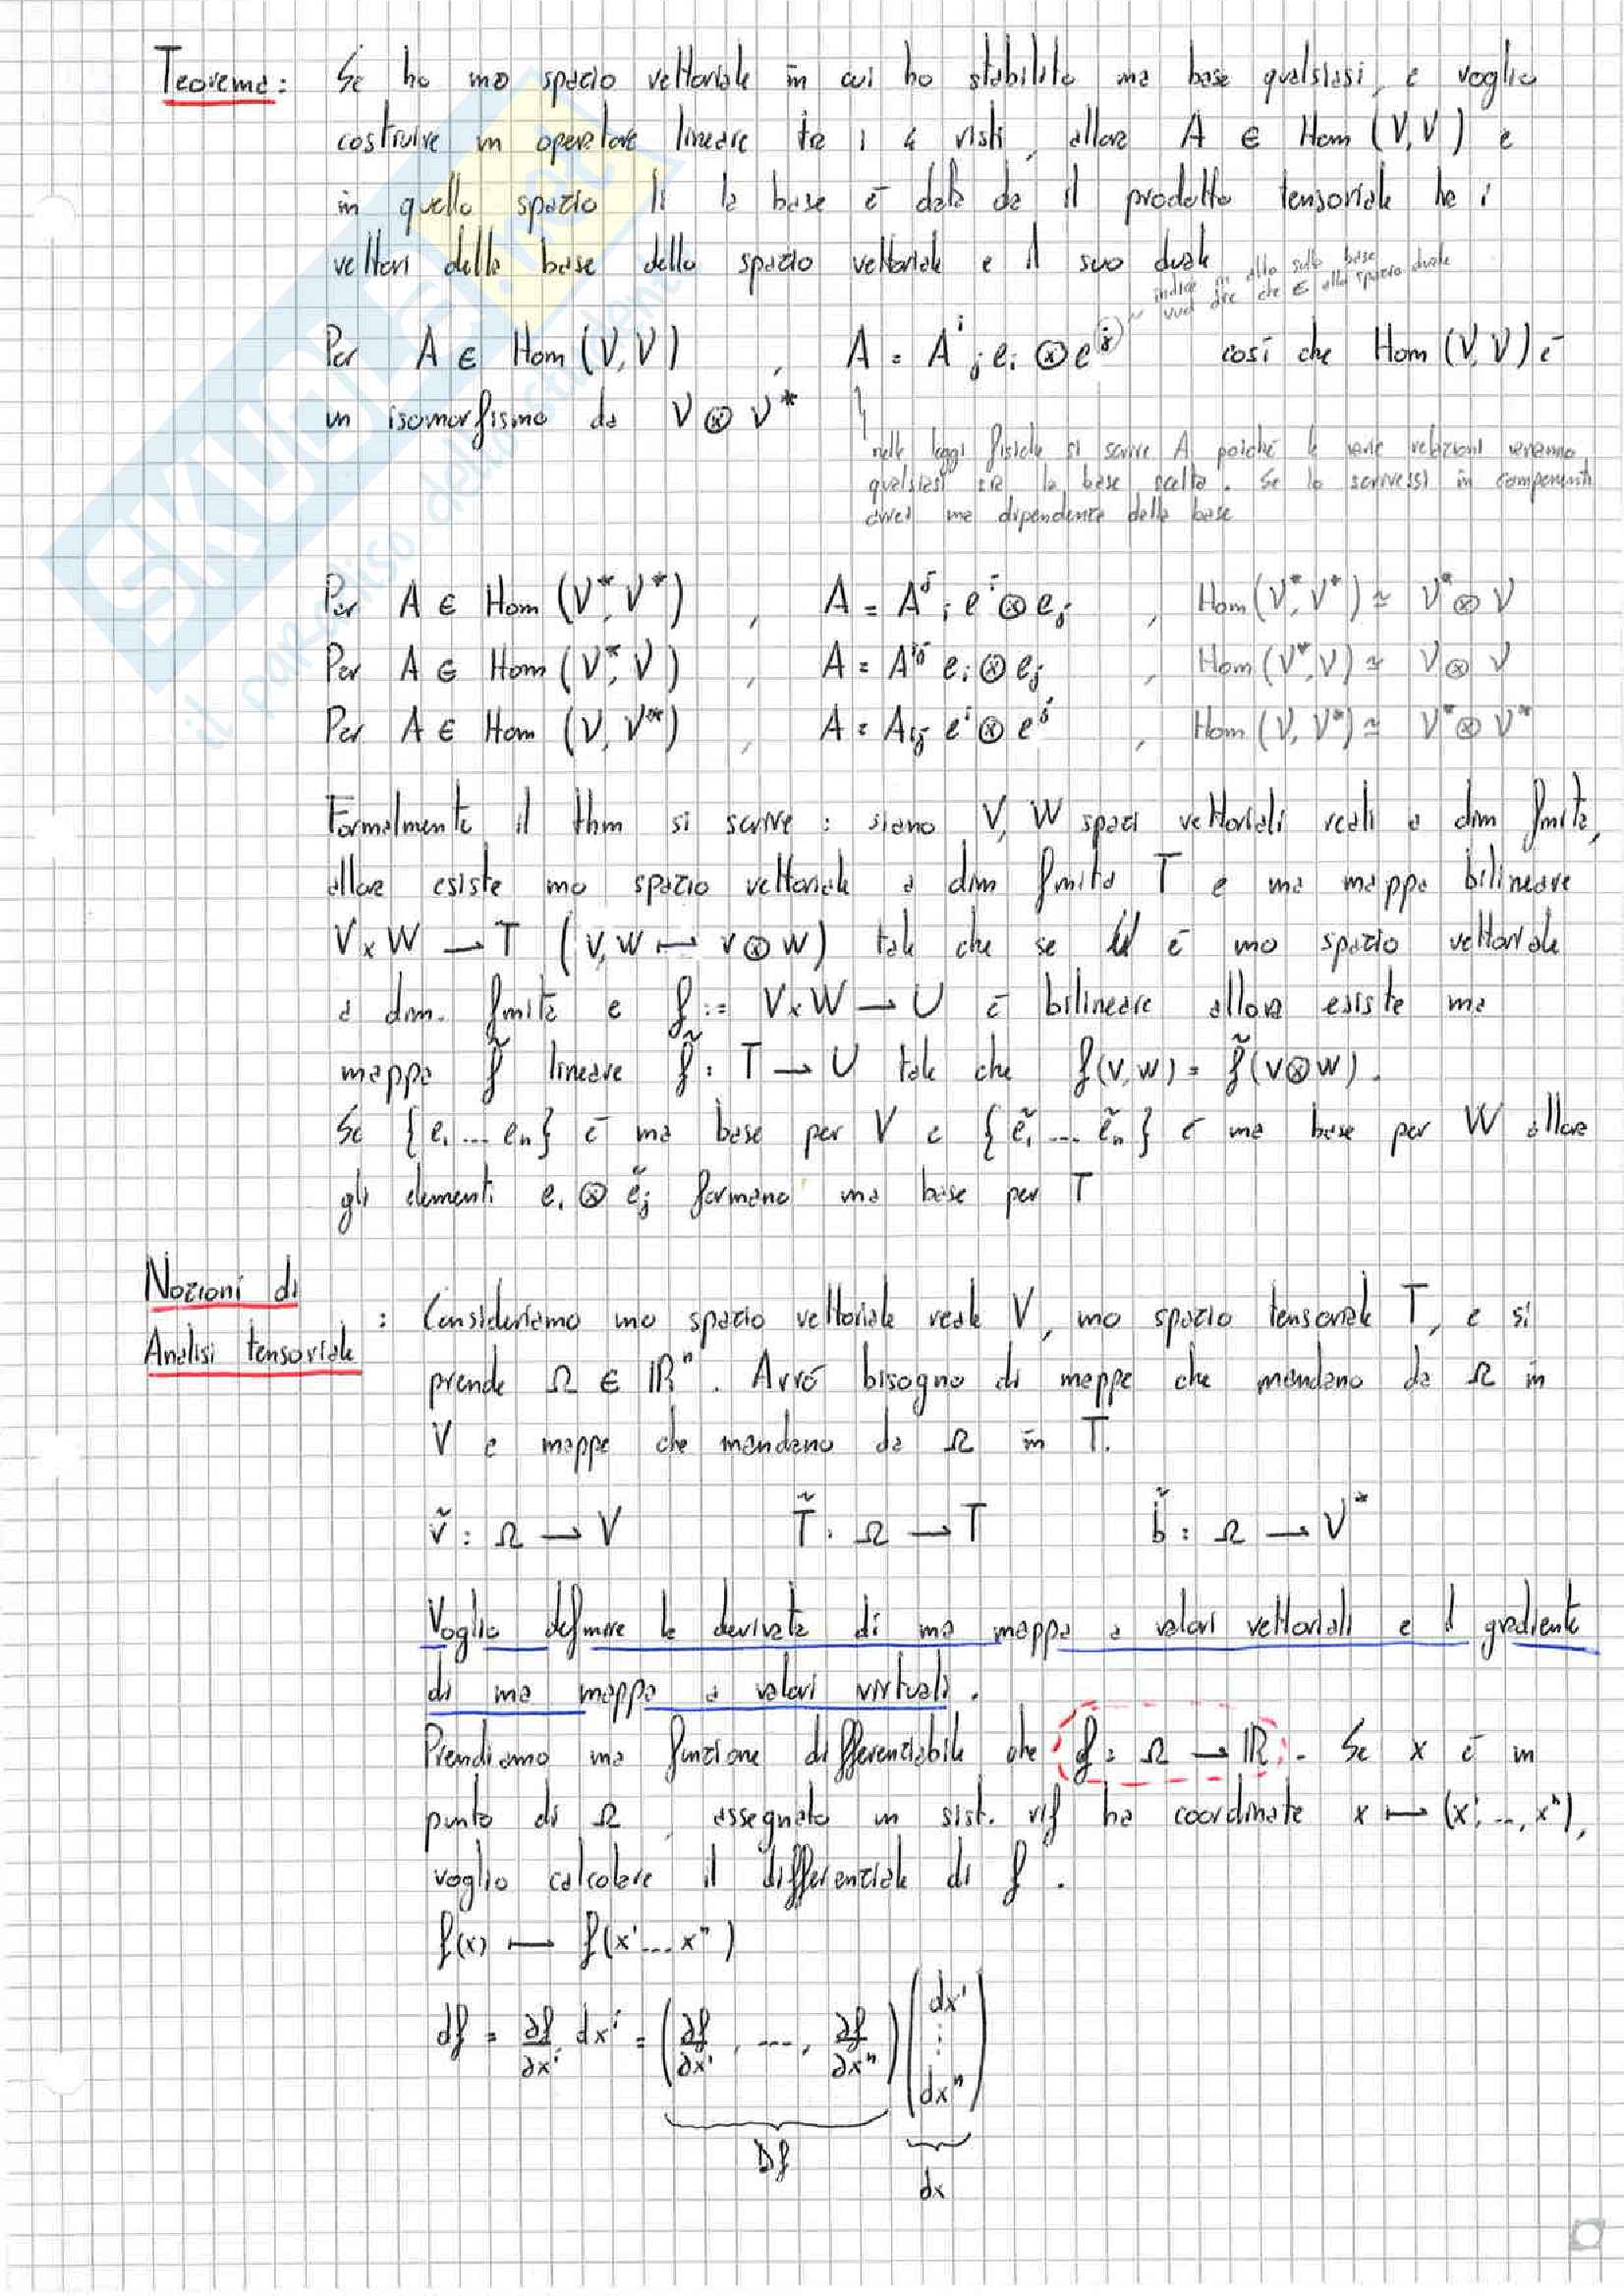 Teorema: Se ho uno spazio vettoriale in cui ho stabilito una base qualsiasi, e voglio
costruire un operatore lineare tra i 4 visti, allora A ∈ Hom (V,V) e
in quello spazio li la base è data da il prodotto tensoriale tra i
vettori della base dello spazio vettoriale e il suo duale
indice in alto sulla base
vuol dire che ∈ allo spazio duale
Per A ∈ Hom (V,V) , A = A^i_j e_i ⊗ e^j così che Hom (V,V) è
un isomorfismo da V ⊗ V*
nelle leggi fisiche si scrive A poiché le varie relazioni
qualsiasi sia la base scelta. Se lo scrivessi in componenti
avrei una dipendenza dalla base
Per A ∈ Hom (V*,V*) , A = A^j_i e^i ⊗ e_j , Hom (V*,V*) ≃ V* ⊗ V
Per A ∈ Hom (V*,V) , A = A^ij e_i ⊗ e_j , Hom (V*,V) ≃ V ⊗ V
Per A ∈ Hom (V,V*) , A = A_ij e^i ⊗ e^j , Hom (V,V*) ≃ V* ⊗ V*
Formalmente il thm si scrive : siano V, W spazi vettoriali reali a dim finita,
allora esiste uno spazio vettoriale a dim finita T e una mappa bilineare
V × W → T (v,w ↦ v ⊗ w) tale che se U è uno spazio vettoriale
a dim. finita e f := V × W → U è bilineare allora esiste una
mappa f̃ lineare f̃ : T → U tale che f(v,w) = f̃(v ⊗ w).
Se {e_1 ... e_n} è una base per V e {ẽ_1 ... ẽ_n} è una base per W allora
gli elementi e_i ⊗ ẽ_j formano una base per T
Nozioni di
Analisi tensoriale : Consideriamo uno spazio vettoriale reale V, uno spazio tensoriale T, e si
prende Ω ∈ ℝ^n . Avrò bisogno di mappe che mandano da Ω in
V e mappe che mandano da Ω in T.
ṽ : Ω → V T̃ : Ω → T b̃ : Ω → V*
Voglio definire la derivata di una mappa a valori vettoriali e il gradiente
di una mappa a valori virtuali.
Prendiamo una funzione differenziabile che f = Ω → ℝ . Se x è un
punto di Ω , assegnato un sist. rif ha coordinate x ↦ (x^1, ..., x^n),
voglio calcolare il differenziale di f .
f(x) ↦ f(x^1 ... x^n)
df = ∂f/∂x^i dx^i = (∂f/∂x^1 , ... , ∂f/∂x^n) (dx^1 ⋮ dx^n)
Df
dx
SKUOLA.net
il paradiso dello studente